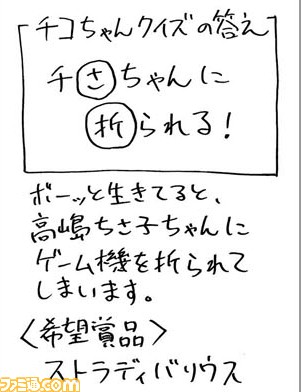 チコちゃんクイズの答え
チさちゃんに
折られる!
ボーッと生きてると、
高嶋ちさ子ちゃんに
ゲーム機を折られて
しまいます。
〈希望賞品〉
ストラディバリウス
ファミ通.com